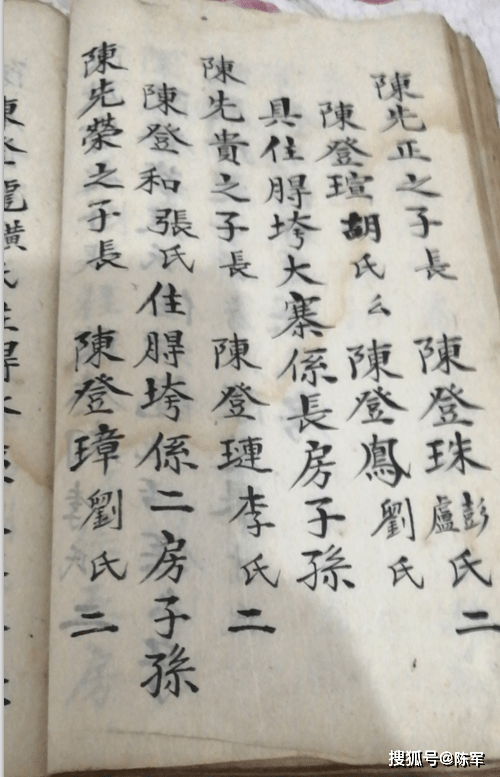 陳先正之子長 陳登珠彭盧氏 二
陳登瑄胡氏 么 陳登鳳劉氏
具住脟垮大寨係長房子孫
陳先貴之子長 陳登璉李氏 二
陳登和張氏住脟垮係二房子孫
陳先榮之子長 陳登璋劉氏 二
搜狐号@陈军